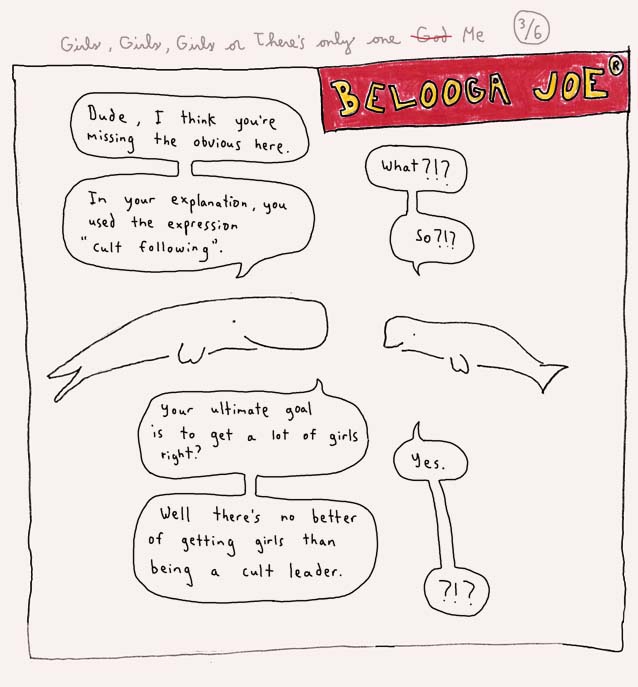 Girls, Girls, Girls or There's only one God Me 3/6
BELOOGA JOE ®
Dude, I think you're
missing the obvious here.
In your explanation, you
used the expression
"cult following".
What?!?
So?!?
Your ultimate goal
is to get a lot of girls
right?
Yes.
Well there's no better
of getting girls than
being a cult leader.
?!?